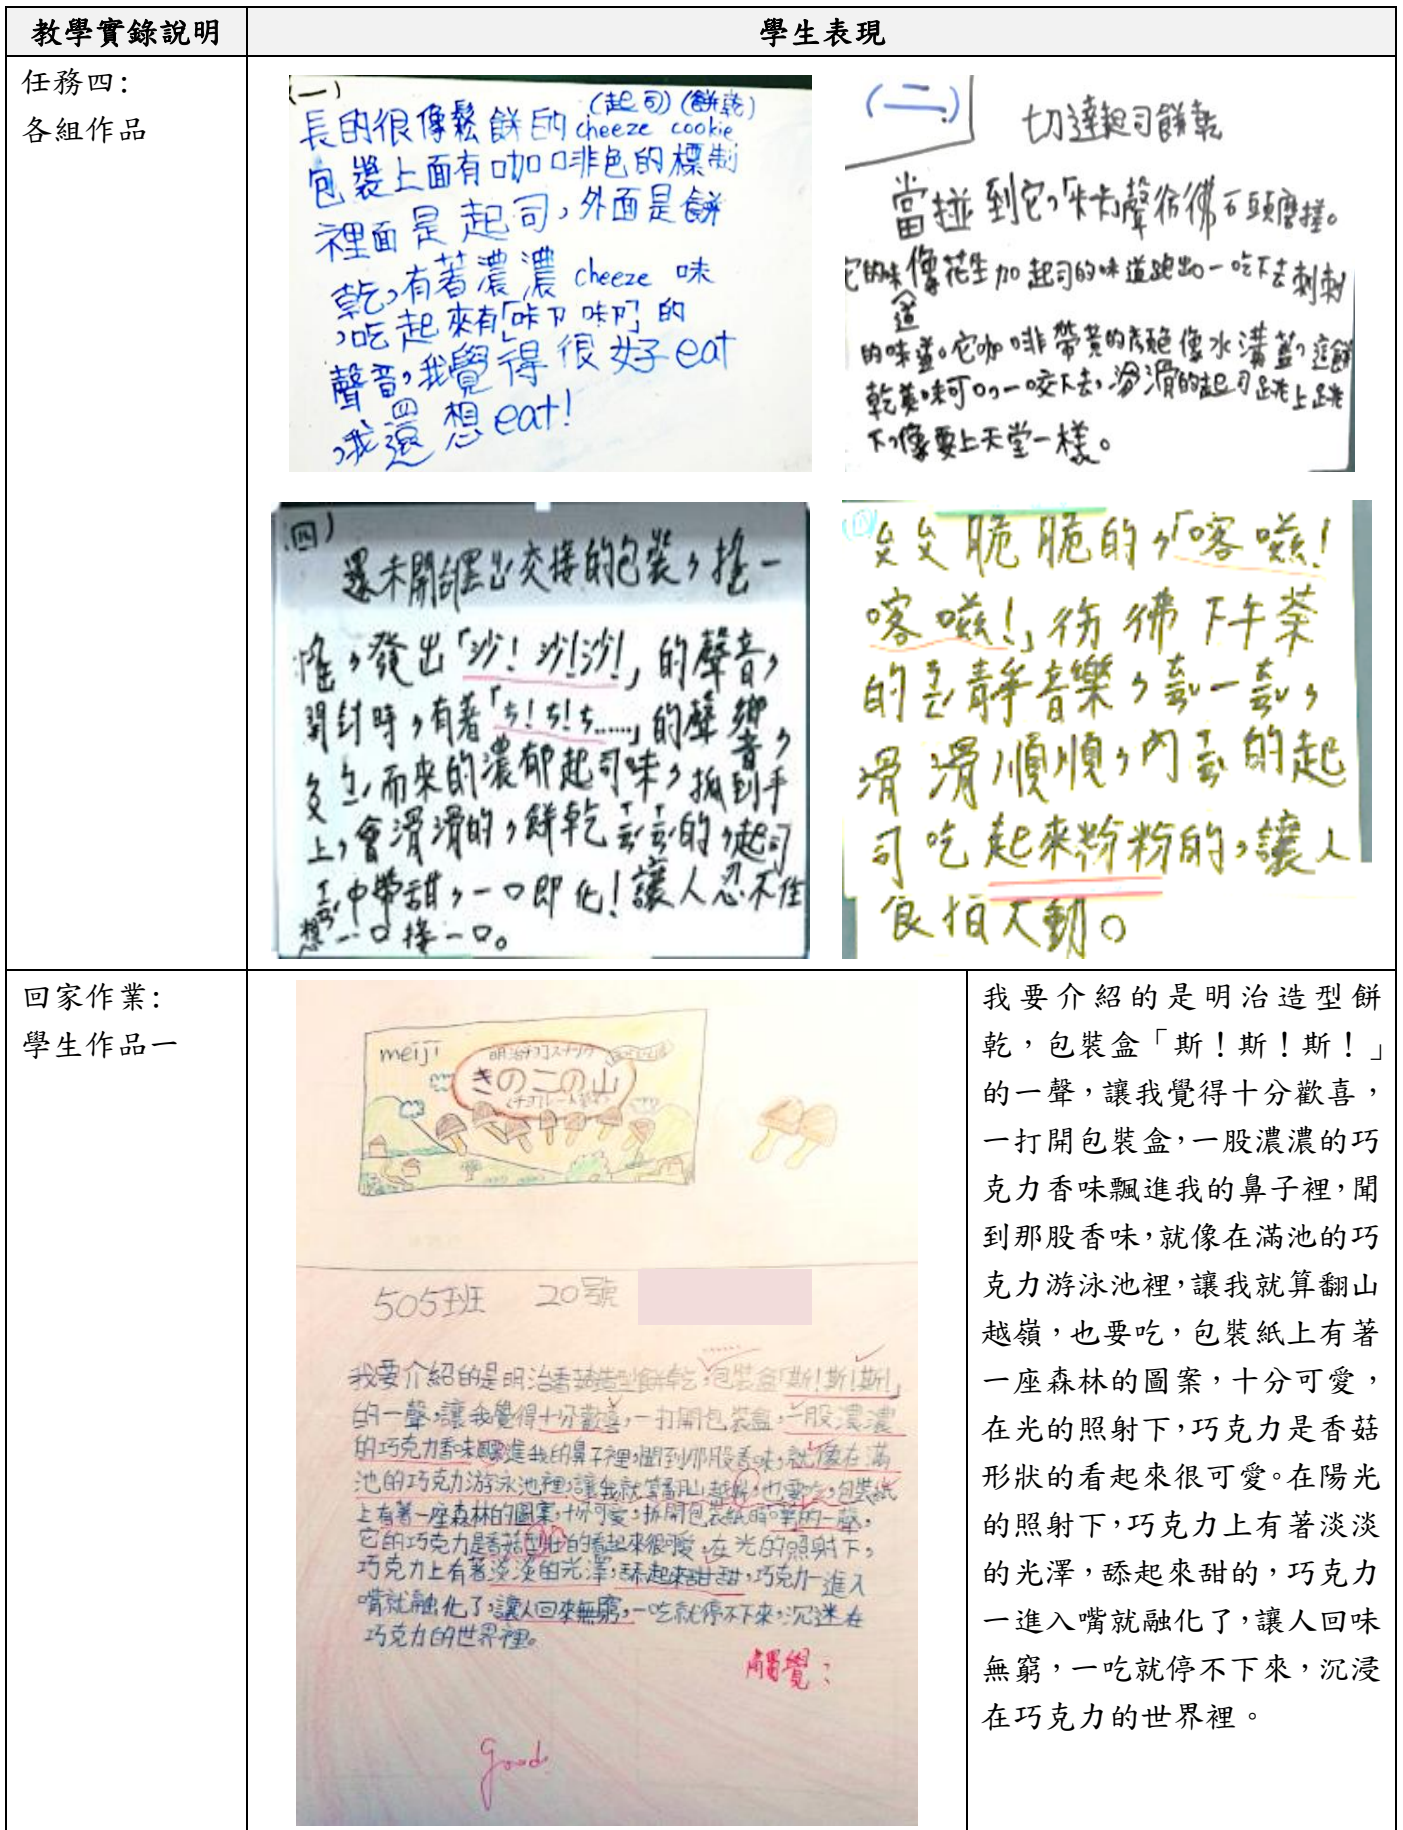 教學實錄說明
學生表現
任務四:
各組作品
(一)
(起司)(餅乾)
長的很像鬆餅的cheeze cookie
包裝上面有咖啡色的標制
裡面是起司,外面是餅
乾,有著濃濃cheeze味
,吃起來有「咔ㄗ咔ㄗ」的
聲音,我覺得很好eat
,我還想eat!
(二)
切達起司餅乾
當碰到它,「卡卡」聲彷彿石頭磨擦。
它的味道像花生加起司的味道跑出,一吃下去刺刺
的味道。它咖啡帶黃的顏色像水溝蓋,這餅
乾美味可口,一咬下去,滑滑的起司跳上跳
下,像要上天堂一樣。
(四)
還未開封交接的包裝,搖一
搖,發出「沙!沙!沙!」的聲音,
開封時,有著「ㄘ!ㄘ!ㄘ......」的聲響,
而來的濃郁起司味,抓到手
上,會滑滑的,餅乾ㄒㄧㄤㄒㄧㄤ的,起司
中帶甜,一口即化!讓人忍不住
想一口接一口。
脆脆的,「喀嗞!
喀嗞!」彷彿下午茶
的靜音樂,一
滑滑順順,內的起
司吃起來粉粉的,讓人
食指大動。
回家作業:
學生作品一
meiji
きのこの山
505班 20號
我要介紹的是明治香菇造型餅乾,包裝盒「斯!斯!斯!」
的一聲,讓我覺得十分歡喜,一打開包裝盒,一股濃濃
的巧克力香味飄進我的鼻子裡,聞到那股香味,就像在滿
池的巧克力游泳池裡,讓我就算翻山越嶺,也要吃,包裝紙
上有著一座森林的圖案,十分可愛,拆開包裝紙時嘩的一聲,
它的巧克力是香菇型壯的看起來很可愛,在光的照射下,
巧克力上有著淡淡的光澤,舔起來甜甜,巧克力一進入
嘴就融化了,讓人回來無窮,一吃就停不下來,沉迷在
巧克力的世界裡。
觸覺:
good
我要介紹的是明治造型餅
乾,包裝盒「斯!斯!斯!」
的一聲,讓我覺得十分歡喜,
一打開包裝盒,一股濃濃的巧
克力香味飄進我的鼻子裡,聞
到那股香味,就像在滿池的巧
克力游泳池裡,讓我就算翻山
越嶺,也要吃,包裝紙上有著
一座森林的圖案,十分可愛,
在光的照射下,巧克力是香菇
形狀的看起來很可愛。在陽光
的照射下,巧克力上有著淡淡
的光澤,舔起來甜的,巧克力
一進入嘴就融化了,讓人回味
無窮,一吃就停不下來,沉浸
在巧克力的世界裡。